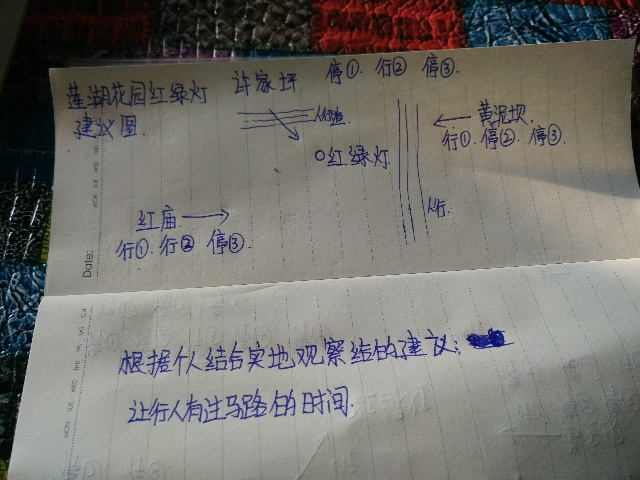 莲湖花园红绿灯
建议图.
许家坪 停①. 行② 停③.
人行道
←黄泥坝.
行①. 停②. 停③.
○红绿灯
人行.
红庙→
行①. 行② 停③.
Date:
根据个人结合实地观察给的建议:
让行人有过马路的时间.